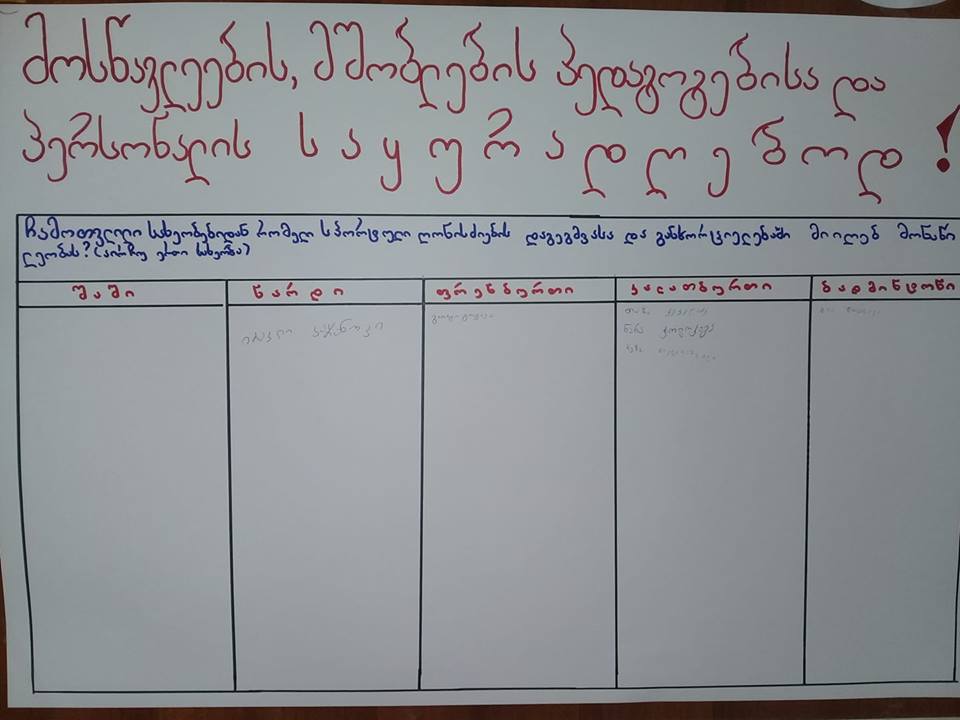 მოსწავლეების, მშობლების პედაგოგებისა და
პერსონალის საყურადღებოდ!
ჩამოთვლილი სახეობებიდან რომელ სპორტული ღონისძიების დაგეგმვასა და განხორციელებაში მიიღებ მონაწი
ლეობას? (აირჩიე ერთი სახეობა)
შაში ნარდი ფრენბურთი კალათბურთი ბადმინტონი